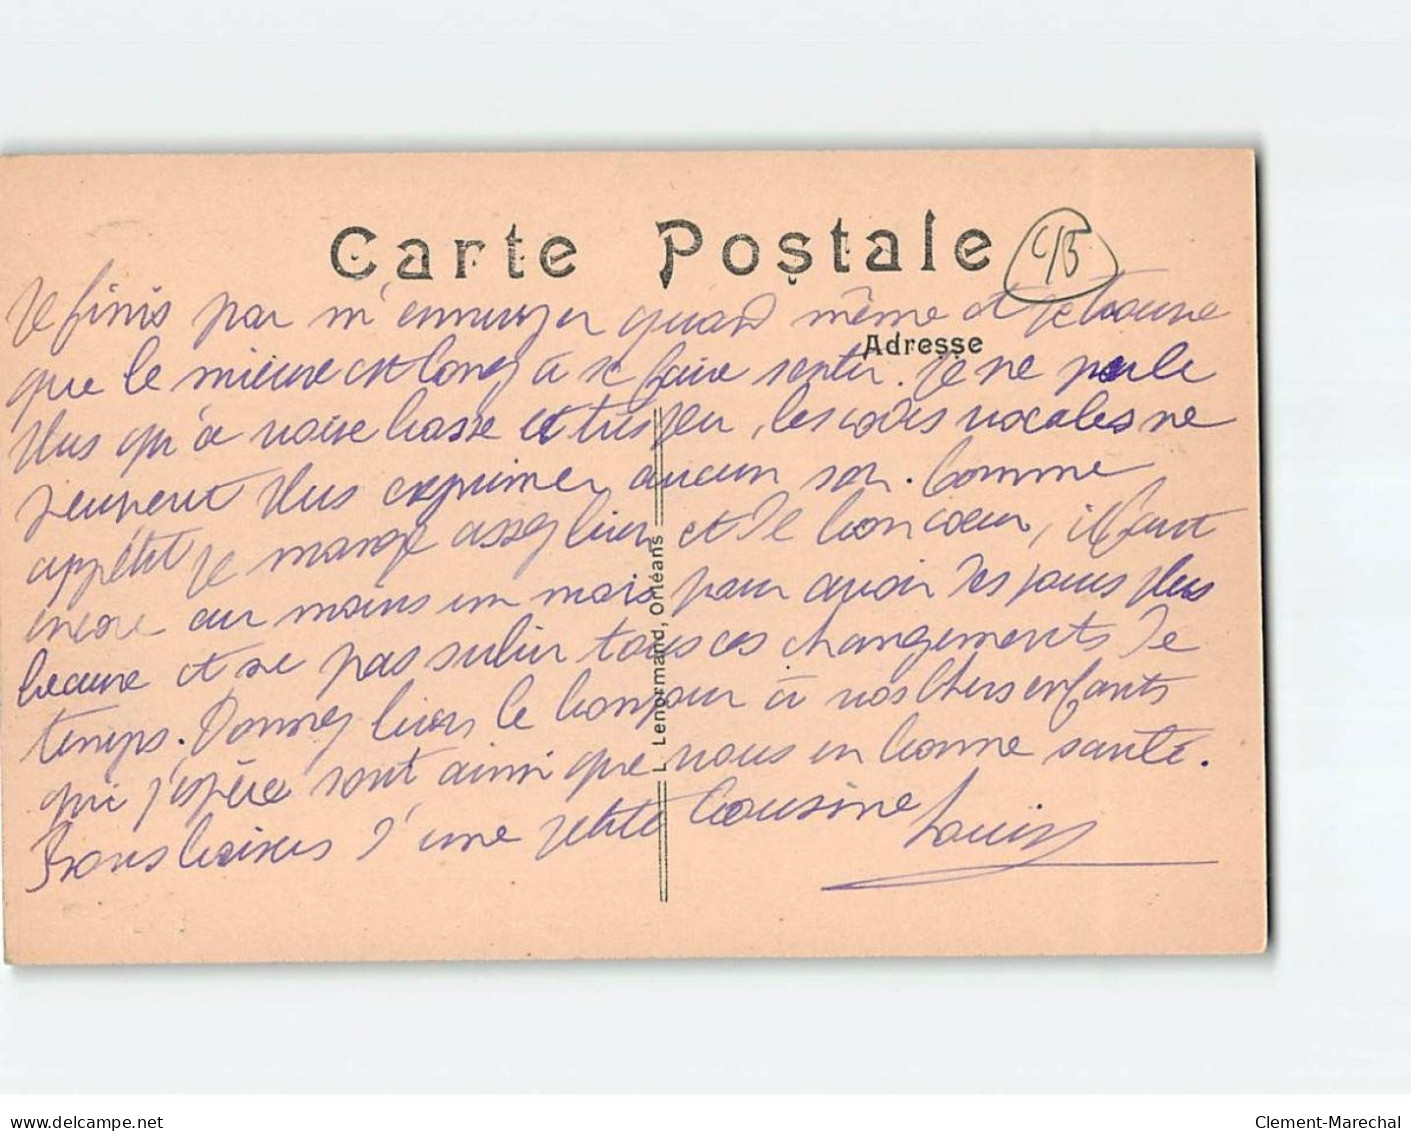 Carte Postale
C/B
Adresse
Je finis par m'ennuyer quand même et je trouve
que le mieux est long à se faire sentir. Je ne parle
plus qu'à voix basse et très peu, les cordes vocales ne
peuvent plus exprimer aucun son. Comme
appétit je mange assez bien et de bon coeur, il faut
encore au moins un mois pour avoir des jours plus
beaux et ne pas subir tous ces changements de
temps. Donnez bien le bonjour à vos chers enfants
qui j'espère sont ainsi que vous en bonne santé.
Bons baisers d'une petite Cousine
Louis
L. Lenormand, Orléans
delcampe.net
Clement-Marechal